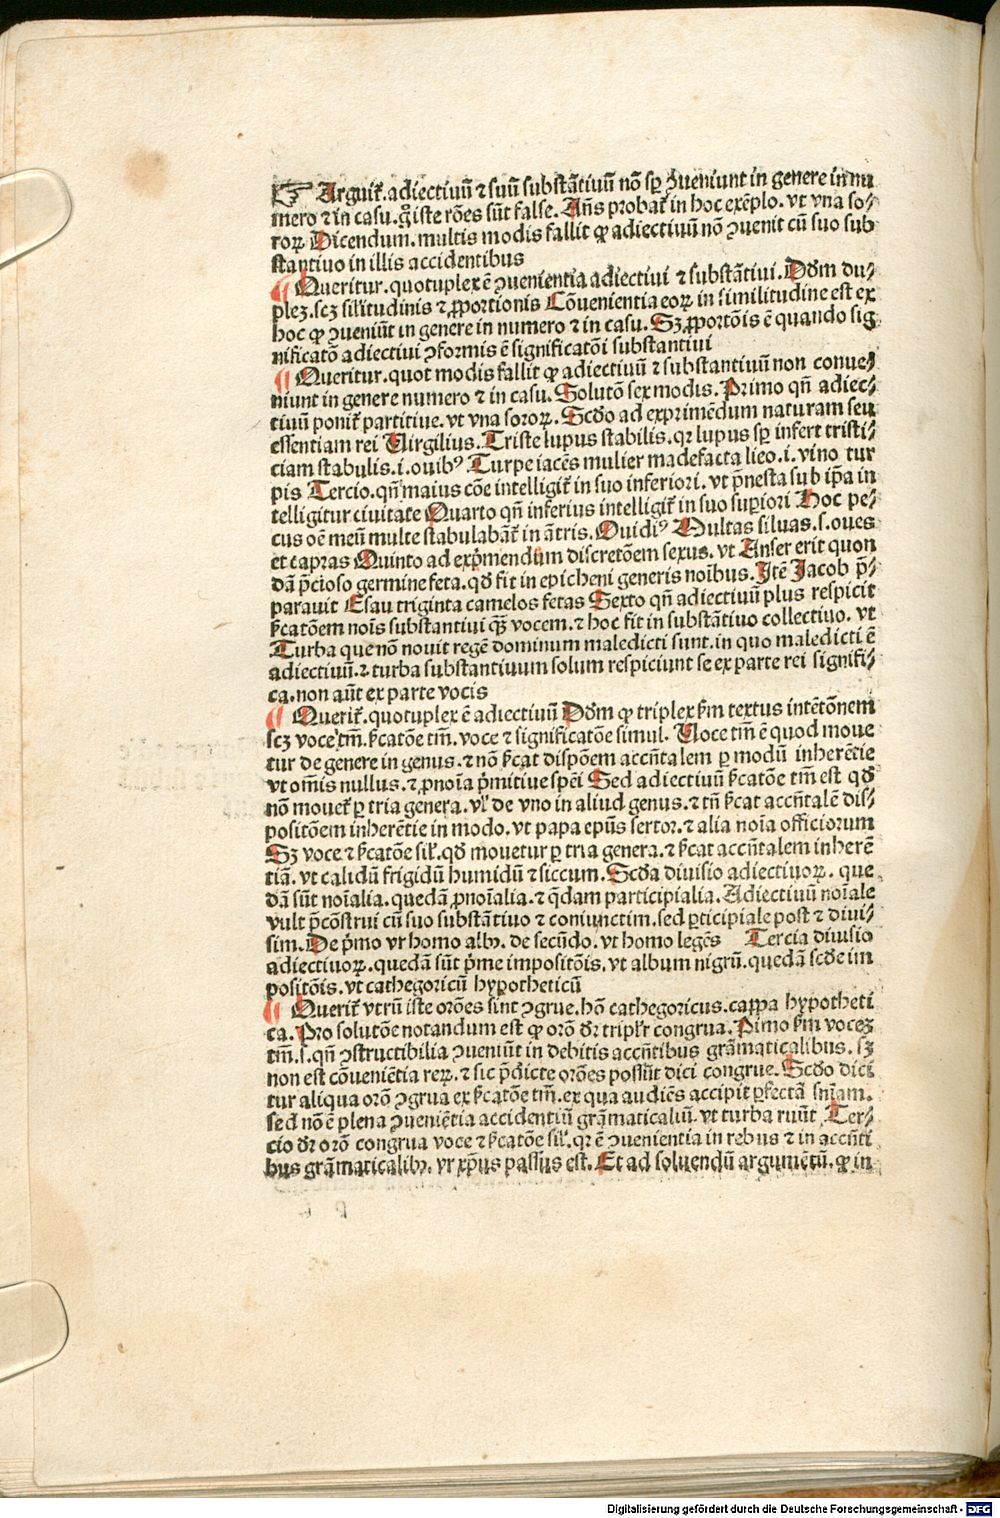 ☞ Arguit᷑. adiectiuū ⁊ suū substātiuū nō sp̄ ꝯueniunt in genere in nu
mero ⁊ in casu. g̊ iste rōes sūt false. Añs probat᷑ in hoc exēplo. vt vna so⸗
roꝝ Dicendum. multis modis fallit ꝙ adiectiuū nō ꝯuenit cū suo sub
stantiuo in illis accidentibus
¶ Queritur. quotuplex ē ꝯuenientia adiectiui ⁊ substātiui. Dōm du⸗
plex. scꝫ silitudinis ⁊ ꝓportionis Cōuenientia eoꝝ in similitudine est ex
hoc ꝙ ꝯueniūt in genere in numero ⁊ in casu. Sꝫ ꝓportōis ē quando sig
nificatō adiectiui ꝯformis ē significatōi substantiui
¶ Queritur. quot modis fallit ꝙ adiectiuū ⁊ substantiuū non conue⸗
niunt in genere numero ⁊ in casu. Solutō sex modis. Primo qñ adiec⸗
tiuū ponit᷑ partitiue. vt vna soroꝝ. Scd̄o ad exprimēdum naturam seu
essentiam rei Uirgilius. Triste lupus stabilis. qꝛ lupus sp̄ infert tristi⸗
ciam stabulis. i. ouibꝰ Turpe iacēs mulier madefacta lieo. i. vino tur
pis Tercio. qñ maius cōe intelligit᷑ in suo inferiori. vt p̄nesta sub ip̄a in
telligitur ciuitate Quarto qñ inferius intelligit᷑ in suo suꝑiori Hoc pe⸗
cus oē meū multe stabulabāt᷑ in ātris. Ouidiꝰ Multas siluas. s. oues
et capras Quinto ad exp̄mendum discretōem sexus. vt Anser erit quon
dā p̄cioso germine feta. qd̄ fit in epicheni generis noībus. Itē Jacob p̄⸗
parauit Esau triginta camelos fetas Sexto qñ adiectiuū plus respicit
s̄catōem noīs substantiui qꝫ vocem. ⁊ hoc fit in substātiuo collectiuo. vt
Turba que nō nouit regē dominum maledicti sunt. in quo maledicti ē
adiectiuū. ⁊ turba substantiuum solum respiciunt se ex parte rei signifi⸗
ca. non aūt ex parte vocis
¶ Querit᷑. quotuplex ē adiectiuū Dōm ꝙ triplex s̄m textus intētōnem
scꝫ voce tm̄. s̄catōe tm̄. voce ⁊ significatōe simul. Uoce tm̄ ē quod moue
tur de genere in genus. ⁊ nō s̄cat dispōem accñtalem ꝑ modū inherētie
vt om̄is nullus. ⁊ ꝓnoīa p̄mitiue sp̄ei Sed adiectiuū s̄catōe tm̄ est qd̄
nō mouet᷑ ꝑ tria genera. vl̓ de vno in aliud genus. ⁊ tñ s̄cat accñtalē dis⸗
positōem inherētie in modo. vt papa ep̄us sertor. ⁊ alia noīa officiorum
Sꝫ voce ⁊ s̄catōe sil̓. qd̄ mouetur ꝑ tria genera. ⁊ s̄cat accñtalem inherē
tiā. vt calidū frigidū humidū ⁊ siccum. Scd̄a diuisio adiectiuoꝝ. que
dā sūt noīalia. quedā ꝓnoīalia. ⁊ q̄dam participialia. Adiectiuū noīale
vult p̄cōstrui cū suo substātiuo ⁊ coniunctim. sed ꝑticipiale post ⁊ diui⸗
sim. De p̄mo vt homo albꝰ. de secūdo. vt homo legēs Tercia diuisio
adiectiuoꝝ. quedā sūt p̄me impositōis. vt album nigrū. quedā scd̄e im
positōis. vt cathegoricū hypotheticū
¶ Querit᷑ vtrū iste orōes sint ꝯgrue. hō cathegoricus. cappa hypotheti
ca. Pro solutōe notandum est ꝙ orō dr̄ triplr̄ congrua. Pimo s̄m voceꝫ
tm̄. s. qñ ꝯstructibilia ꝯueniūt in debitis accñtibus grāmaticalibus. sꝫ
non est cōueniētia reꝝ. ⁊ sic p̄dicte orōes possūt dici congrue. Scd̄o dici
tur aliqua orō ꝯgrua ex s̄catōe tm̄. ex qua audiēs accipit ꝑfectā sn̄iam.
sed nō ē plena ꝯueniētia accidentiū grāmaticaliū. vt turba ruūt Ter⸗
cio dr̄ orō congrua voce ⁊ s̄catōe sil̓. qꝛ ē ꝯuenientia in rebus ⁊ in accñti
bus grāmaticalibꝰ. vt xp̄us passus est. Et ad soluendū argumētū. ꝙ in